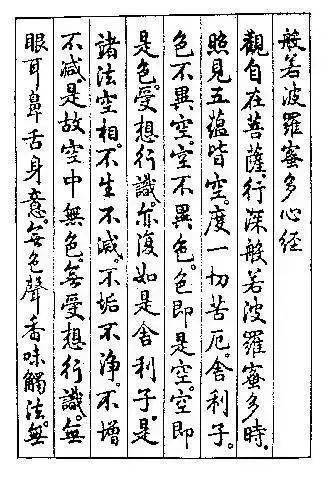 般若波羅蜜多心经
觀自在菩薩。行深般若波羅蜜多時。
照見五蘊皆空。度一切苦厄。舍利子。
色不異空。空不異色。色即是空。空即
是色。受想行識。亦復如是舍利子。是
諸法空相。不生不滅。不垢不净。不增
不减。是故空中無色。無受想行識。無
眼耳鼻舌身意。無色聲香味觸法。無